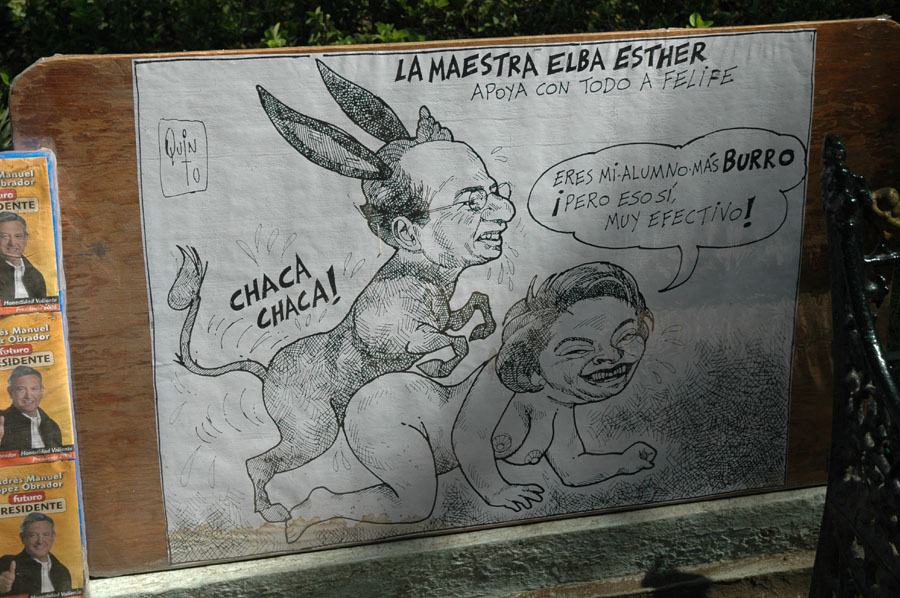 LA MAESTRA ELBA ESTHER
APOYA CON TODO A FELIPE
QUIN
TO
ERES MI ALUMNO MÁS BURRO
¡PERO ESO SÍ,
MUY EFECTIVO!
CHACA
CHACA!
Manuel
Obrador
uro
DENTE
Honestidad Valiente
Presidente 2006
drés Manuel
López Obrador
futuro
PRESIDENTE
Honestidad Valiente
Presidente 2006
ndrés Manuel
ópez Obrador
futuro
PRESIDENTE
Honestidad Valiente